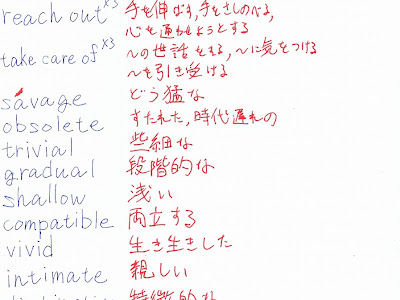 reach out ×3 手を伸ばす,手をさしのべる,
心を通わせようとする
take care of ×3 〜の世話をする,〜に気をつける
〜を引き受ける
savage どう猛な
obsolete すたれた,時代遅れの
trivial 些細な
gradual 段階的な
shallow 浅い
compatible 両立する
vivid 生き生きした
intimate 親しい
特徴的な